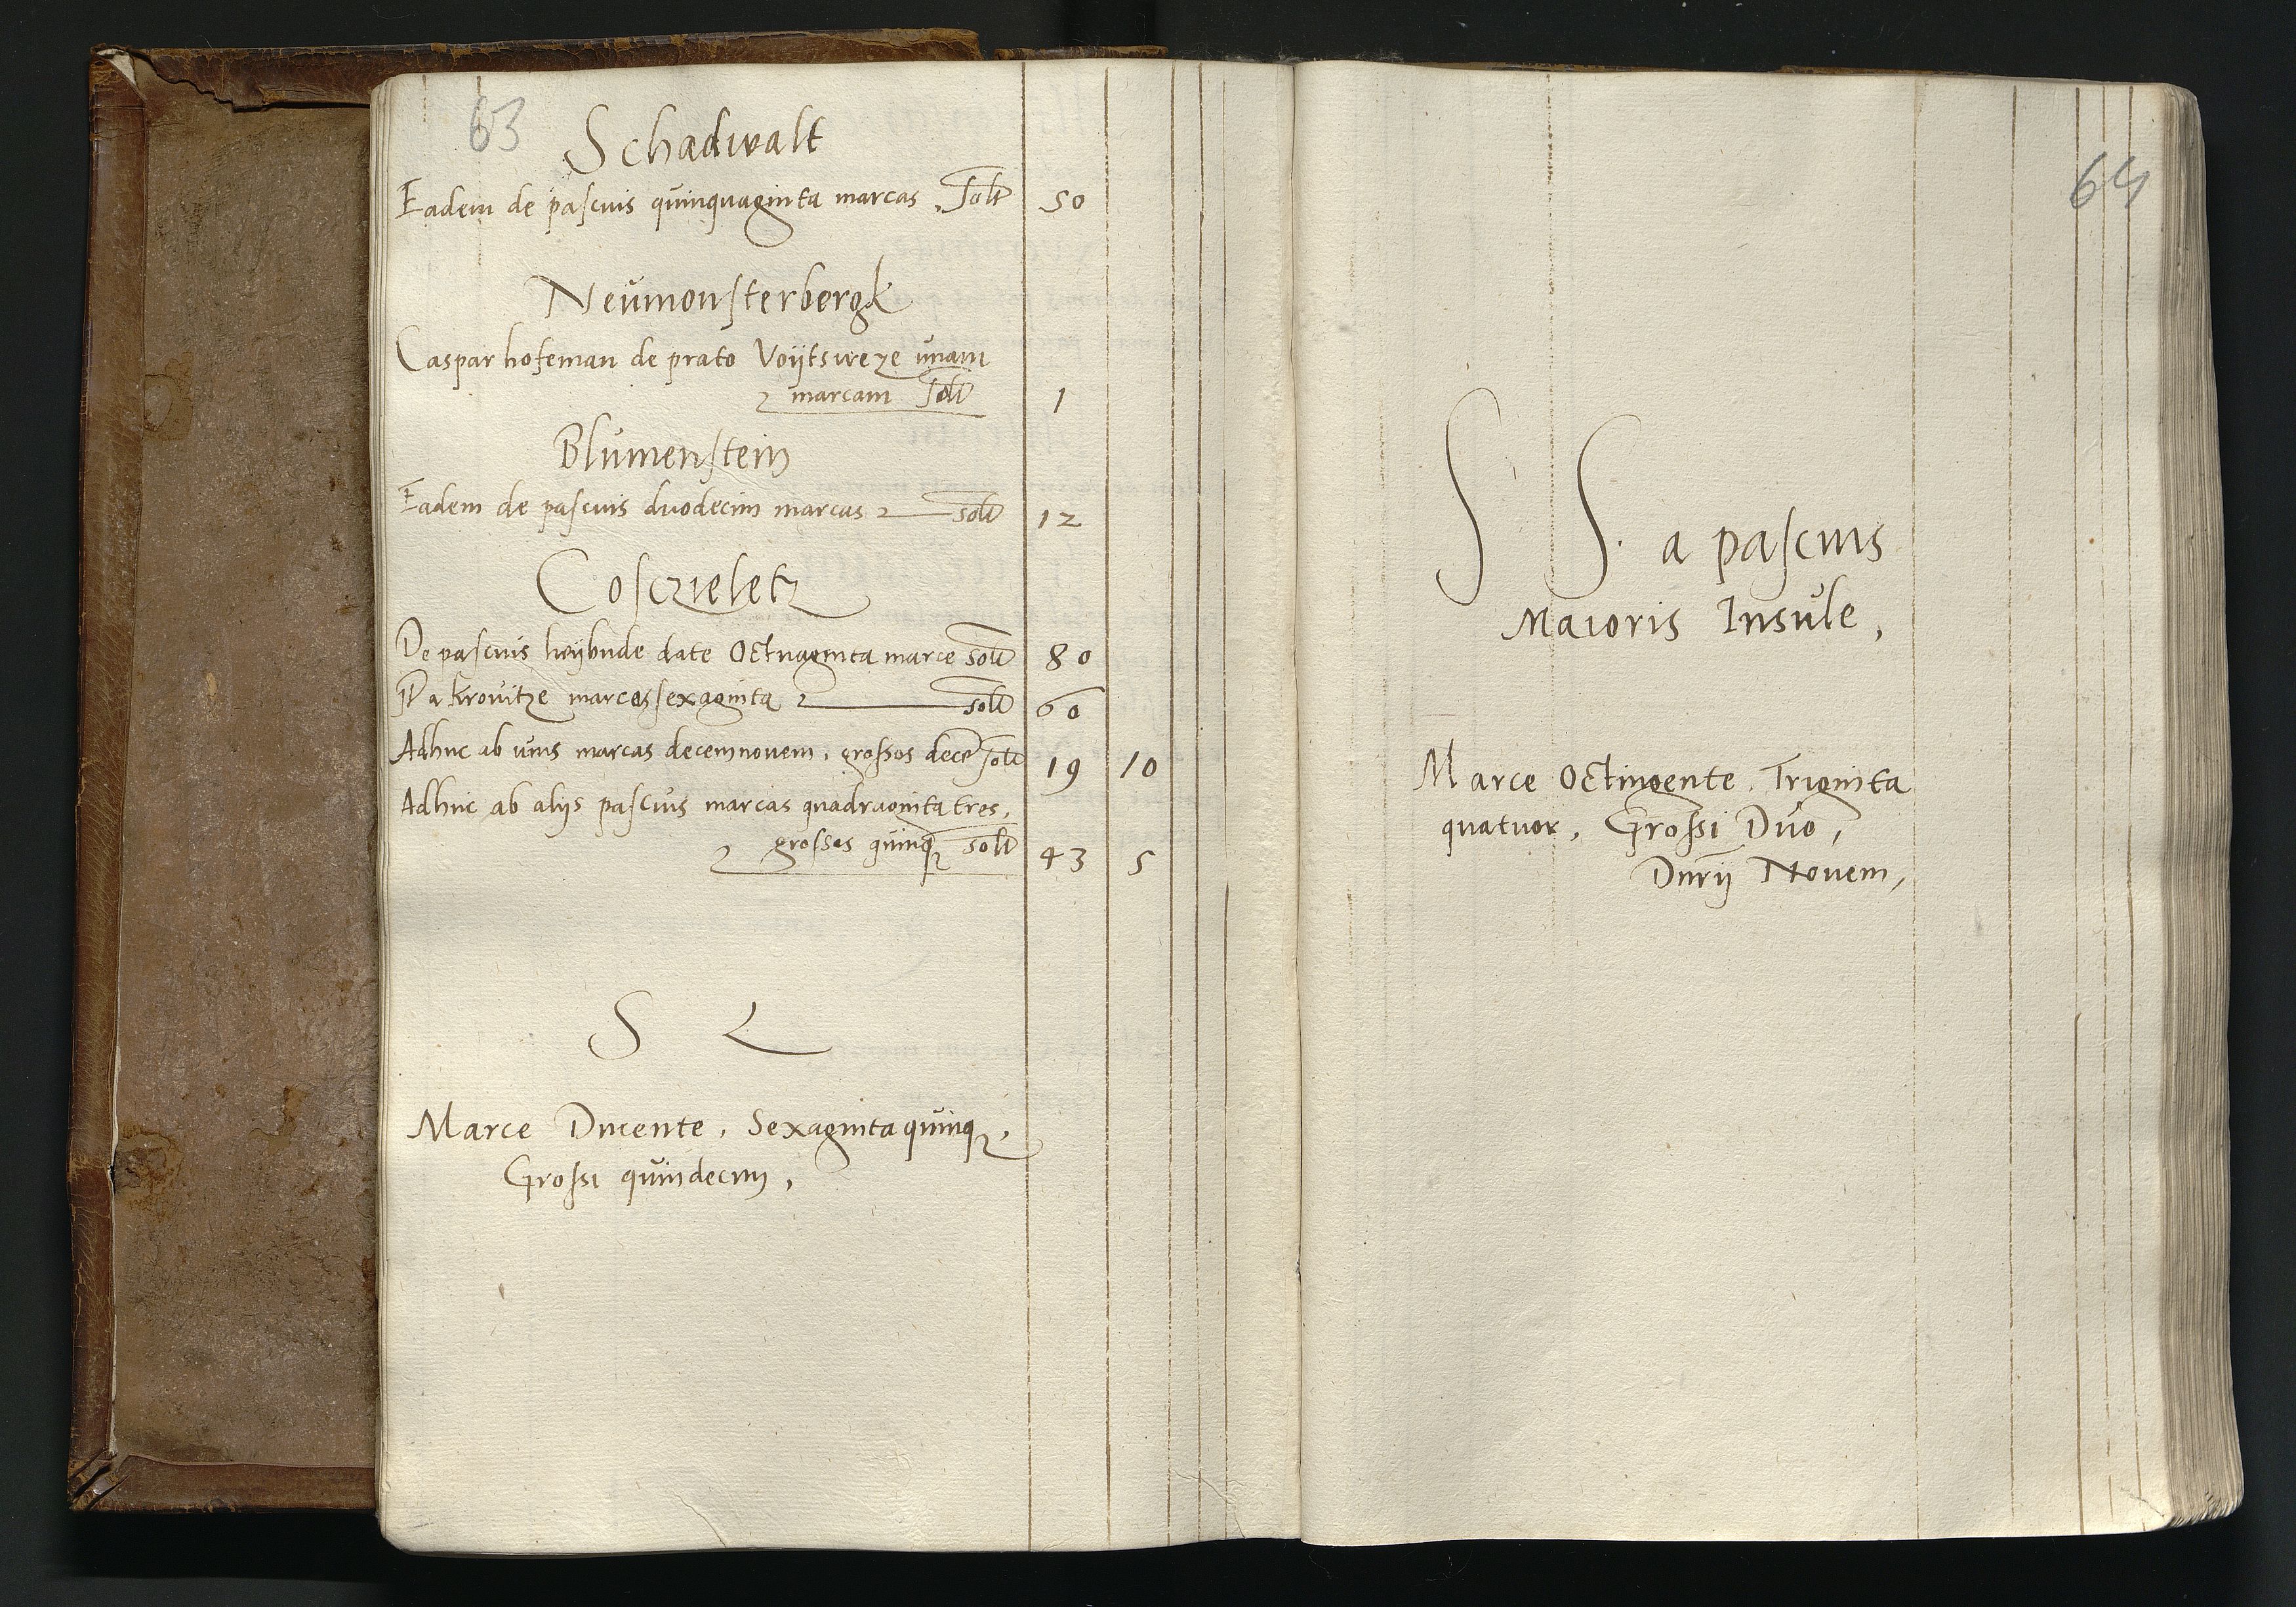 63
Schadwalt
Eadem de pascuis quinquaginta marcas solt 50
Neumonsterbergk
Caspar hofeman de prato Voijtsweze unam
marcam solt 1
Blumenstein
Eadem de pascuis duodecim marcas solt 12
Cosczieletz
De pascuis heijbude date Octuaginta marce solt 80
a Krovitze marcas sexaginta solt 60
Adhuc ab vnis marcas decemnovem, grossos dece solt 19 10
Adhuc ab alijs pascuis marcas quadraginta tres,
grossos quinqꝫ solt 43 5
S L
Marce Ducente, Sexaginta quinqꝫ,
Grossi quindecim,
64
S S. a pascuis
Maioris Insule,
Marce Octingente, Triginta
quatuor, Grossi Duo,
Dnrij Novem,